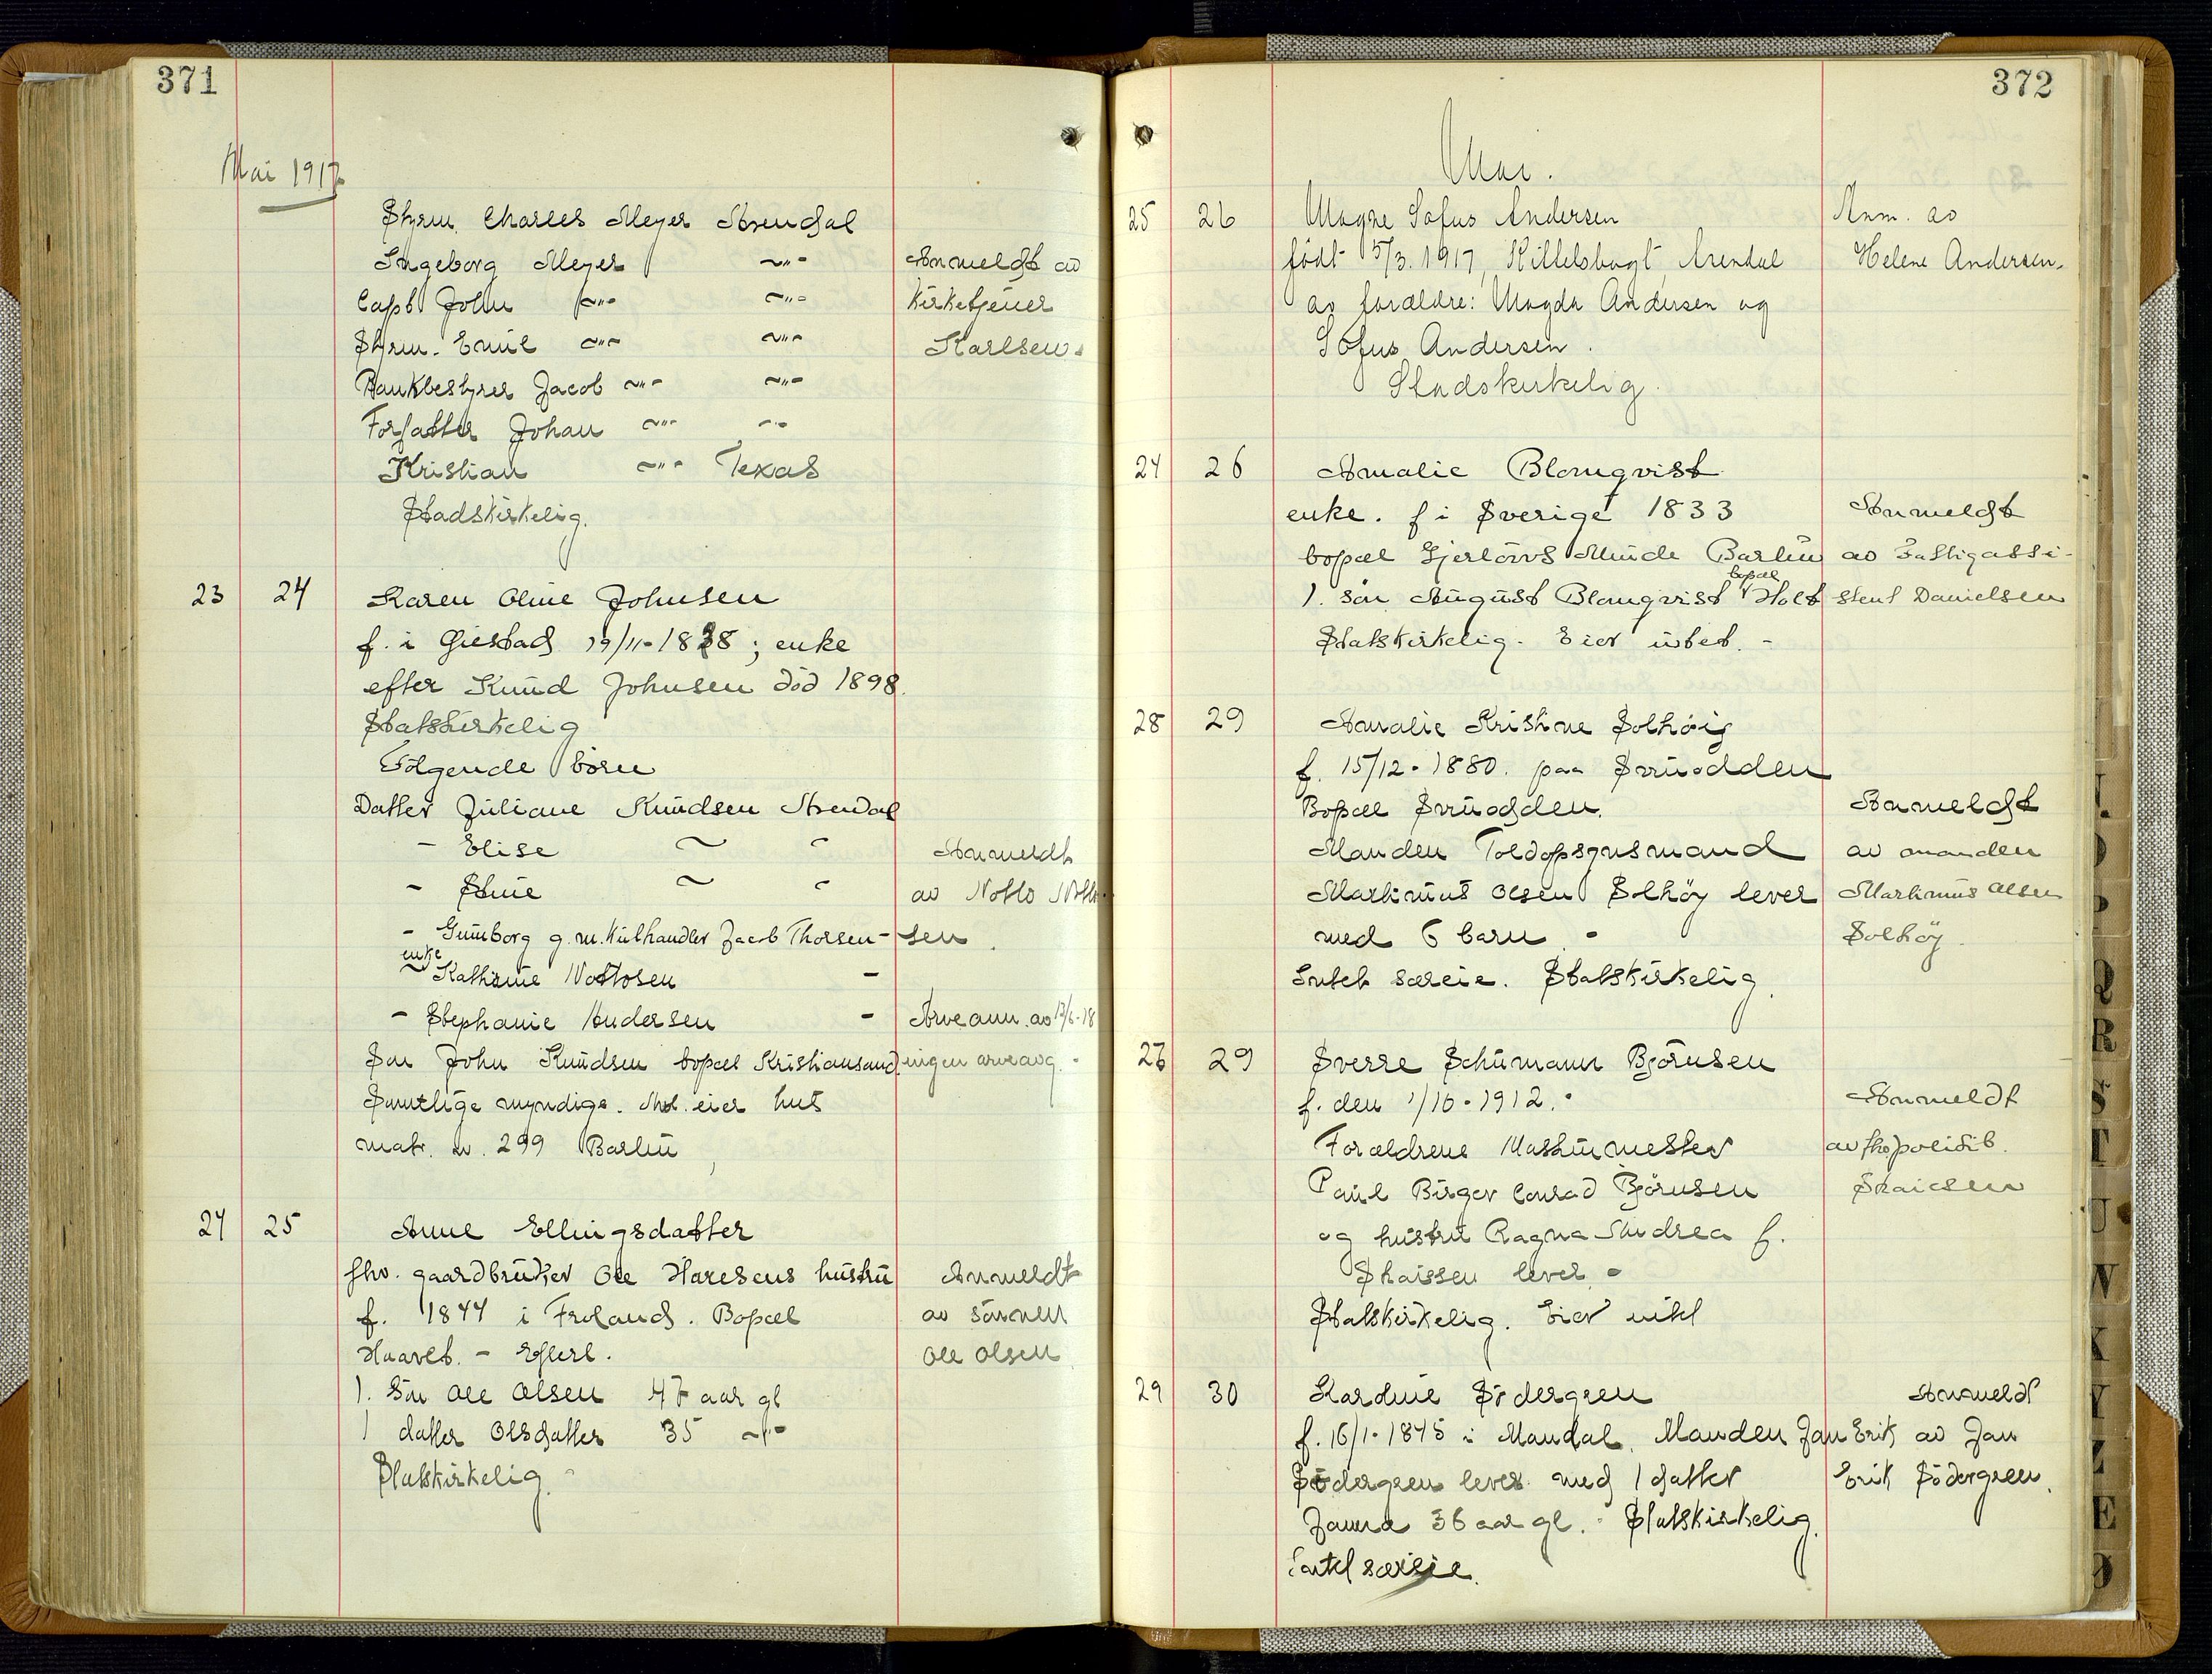 371
Mai 1917
Skprm. Charles Meyer Arendal
Ingeborg Meyer ~"- ~"-
Anmeldt av
Capt John ~"- ~"-
kirketjener
Skprm. Emil ~"- ~"-
Karlsen.
Bankbestyrer Jacob ~"- ~"-
Forfatter Johan ~"- ~"-
Kristian ~"- Texas
Stadskirkelig.
23 24 Karen Oline Johnsen
f. i Giestad 19/11-1838; enke
efter Knud Johnsen død 1898.
Statskirkelig
Følgende børn
Datter Juliane Knudsen Arendal
- Elise ~ "
Anmeldt
- Stine ~ "
av Notto Notto-
- Gunborg g. m. Kulhandler Jacob Thorsen -
sen.
enke
~ Kathrine Nottosen -
- Stephanie Andersen -
Arveanm. av 17/6-18
Søn John Knudsen bopæl Kristiansand.
ingen arveavg. -
Samtlige myndige. Avd. eier hus
matr. nr. 299 Barbu
24 25 Anne Ellingsdatter
fhv. gaardbruker Ole Haresens hustru
Anmeldt
f. 1844 i Froland. Bopæl
av sønnen
Haavet. - Efterl.
Ole Olsen
1. Søn Ole Olsen 47 aar gl
1 datter Olsdatter 35 -"-
Statskirkelig.
372
Mai.
25 26 Magne Sofus Andersen
Anm. av
født 5/3. 1917, Kittelsbugt Arendal
Helene Andersen.
av forældre: Magda Andersen og
Sofus Andersen.
Stadskirkelig.
24 26 Amalie Blomqvist
enke. f i Sverige 1833
Anmeldt
bopæl Gjerløvs Minde Barbu
av Fattigassi-
bopæl
1. søn August Blomqvist Holt
stent Danielsen
Statskirkelig. Eier intet. -
28 29 Amalie Kristine Solhøig
f. 15/12-1880. paa Snuodden
Bopæl Snuodden.
Anmeldt
Manden Toldopsynsmand
av manden
Martinius Olsen Solhøy lever
Martinius Olsen
med 6 barn. -
Solhøy.
Intet særeie. Statskirkelig.
26 29 Sverre Schümann Bjørnsen
f. den 1/10-1912.
Anmeldt
Forældrene Maskinmester
av fhv politib.
Paul Birger Conrad Bjørnsen
Skaissen
og hustru Ragna Andrea f.
Skaissen lever. -
Statskirkelig. Eier intet
29 30 Karoline Södergren
Anmeldt
f. 16/1-1845 i Mandal. Manden Jan Erik
av Jan
Södergren lever med 1 datter
Erik Södergren.
Janna 36 aar gl. - Statskirkelig.
Intet særeie.